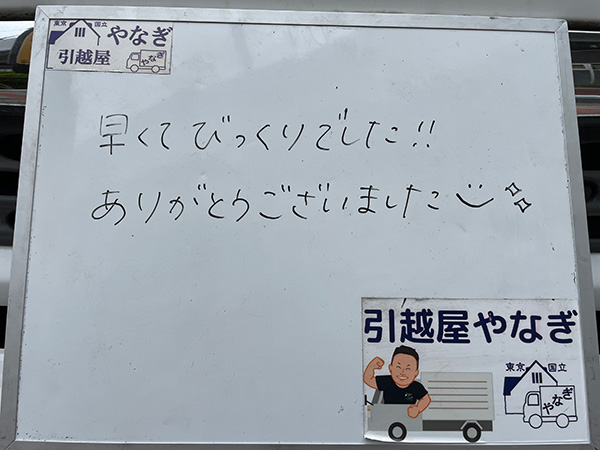 東京 国立
やなぎ
引越屋
やなぎ
早くてびっくりでした!!
ありがとうございました
引越屋やなぎ
東京 国立
やなぎ